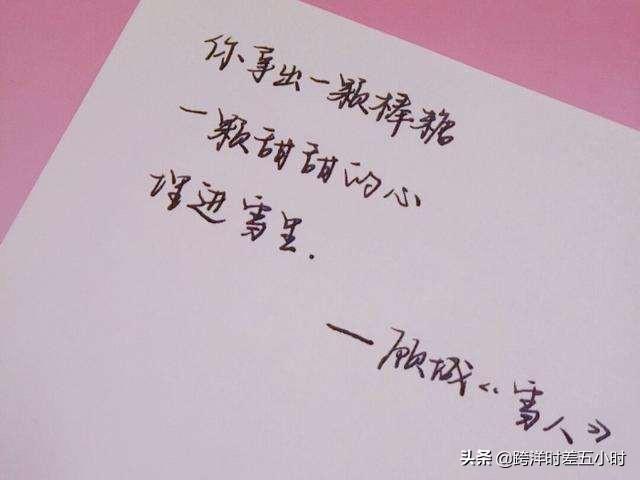 你拿出一颗棒糖
一颗甜甜的心
埋进雪里.
—顾城《雪人》
头条 @跨洋时差五小时